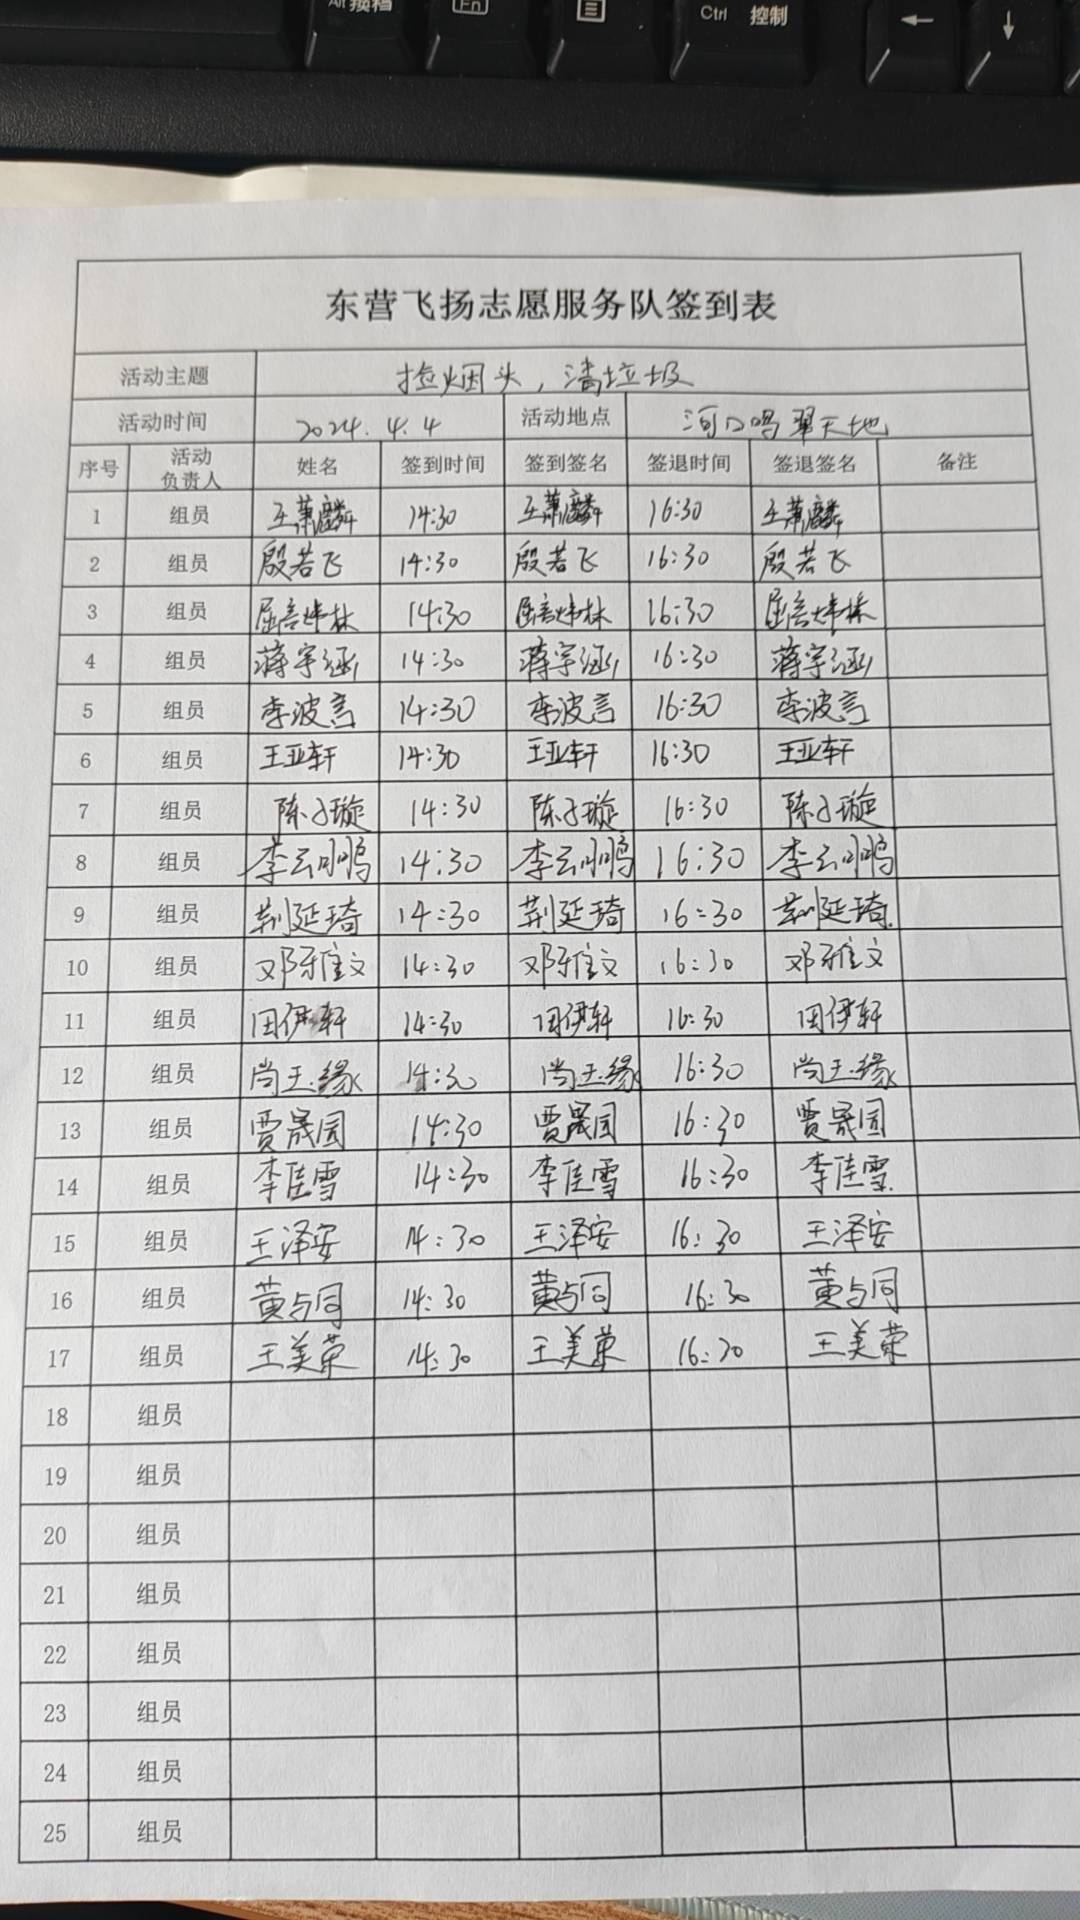 Alt 换档
Fn
Ctrl 控制
←
↓
东营飞扬志愿服务队签到表
活动主题 捡烟头，清垃圾
活动时间 2024.4.4 活动地点 河口鸣翠天地
序号 活动负责人 姓名 签到时间 签到签名 签退时间 签退签名 备注
1 组员 王萧麟 14:30 王萧麟 16:30 王萧麟
2 组员 殷若飞 14:30 殷若飞 16:30 殷若飞
3 组员 14:30 16:30
4 组员 蒋宇涵 14:30 蒋宇涵 16:30 蒋宇涵
5 组员 李波言 14:30 李波言 16:30 李波言
6 组员 王亚轩 14:30 王亚轩 16:30 王亚轩
7 组员 陈子璇 14:30 陈子璇 16:30 陈子璇
8 组员 李云鹏 14:30 李云鹏 16:30 李云鹏
9 组员 荆延琦 14:30 荆延琦 16:30 荆延琦
10 组员 邓雅文 14:30 邓雅文 16:30 邓雅文
11 组员 田伊轩 14:30 田伊轩 16:30 田伊轩
12 组员 尚玉缘 14:30 尚玉缘 16:30 尚玉缘
13 组员 贾晟囩 14:30 贾晟囩 16:30 贾晟囩
14 组员 李佳雪 14:30 李佳雪 16:30 李佳雪
15 组员 王泽安 14:30 王泽安 16:30 王泽安
16 组员 黄与同 14:30 黄与同 16:30 黄与同
17 组员 王美荣 14:30 王美荣 16:30 王美荣
18 组员
19 组员
20 组员
21 组员
22 组员
23 组员
24 组员
25 组员